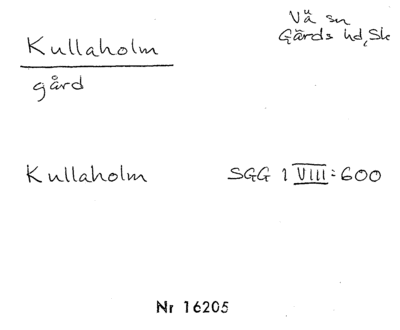 Kullaholm
gård
Vä sn
Gärds hd, Sk
Kullaholm SGG 1 VIII:600
Nr 16205